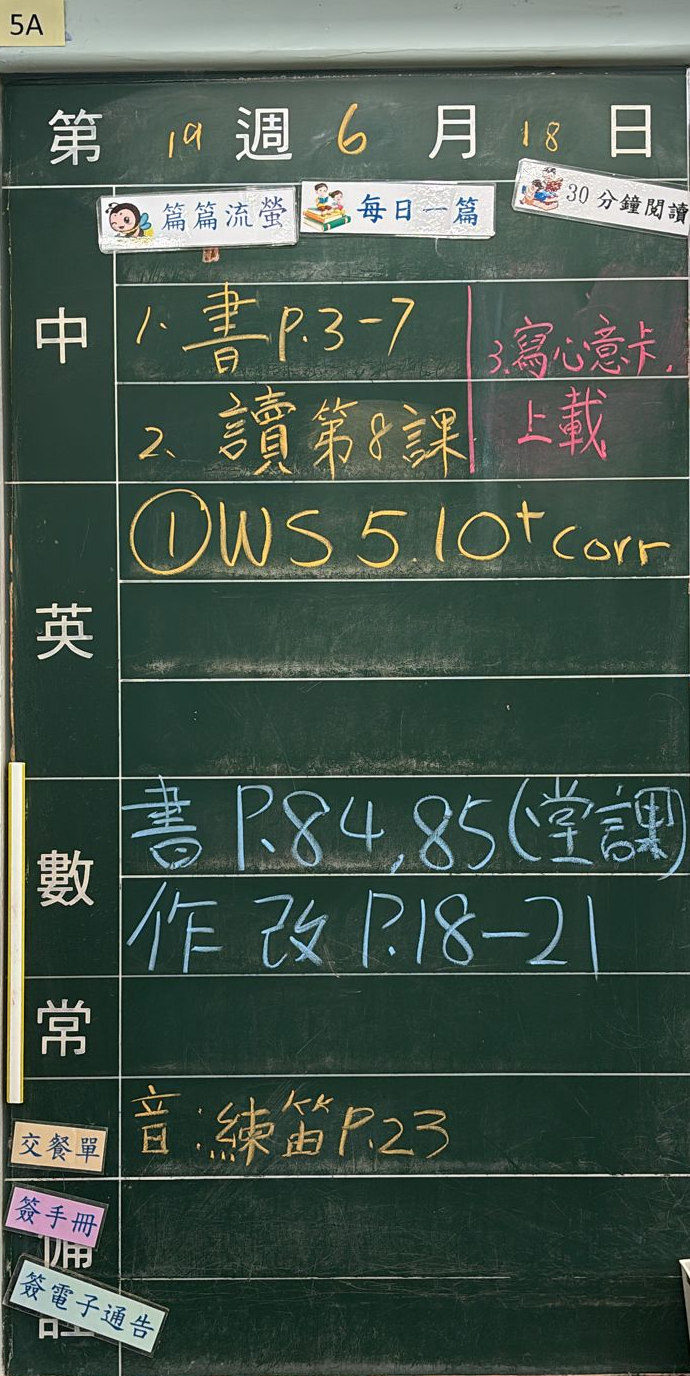 5A
第 19 週 6 月 18 日
篇篇流螢 每日一篇 30分鐘閱讀
中
1. 書 P.3-7
2. 讀第8課
3. 寫心意卡.
上載
英
① WS 5.10 + corr
數
書 P.84, 85 (堂課)
作 改 P.18-21
常
音:練笛 P.23
交餐單
簽手冊
備註
簽電子通告